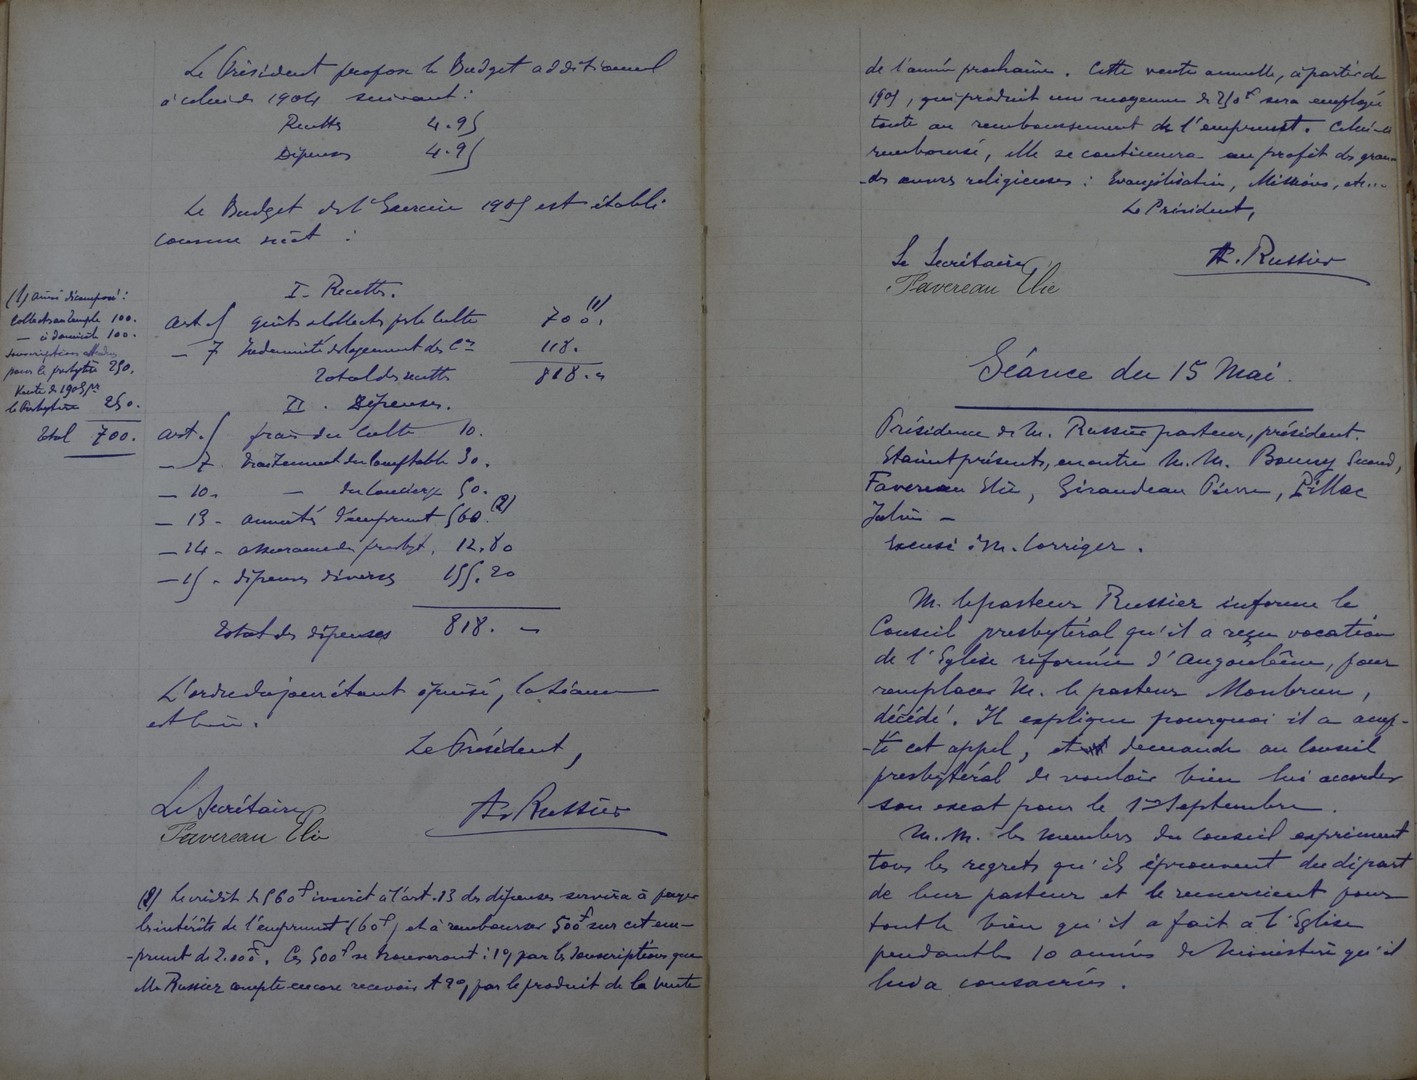 Le Président propose le Budget additionnel
à celui de 1904 suivant :
Recettes 4.95
Dépenses 4.95
Le Budget de l'Exercice 1905 est établi
comme suit :
I. Recettes.
(1) ainsi décomposé :
Collectes au temple 100.
— à domicile 100.
souscriptions
pour le presbytère 250.
Vente de 1905 pr
le Presbytère 250.
Total 700.
art. 5 quêtes et collectes pr le culte 700 (1).
— 7 Indemnité de logement des Cnes 118.
Total des recettes 818. "
II. Dépenses.
art. 5 frais du culte 10.
— 7. traitement du Comptable 30.
— 10. — du Concierge 50.
— 13 - annuités d'emprunt 560. (2)
— 14 - assurance du presbyt. 12.80
— 15 - dépenses diverses 155.20
Total des dépenses 818. —
L'ordre du jour étant épuisé, la séance
est levée.
Le Président,
Le Secrétaire
Favereau Elie
A. Russier
(2) le crédit de 560f inscrit à l'art. 13 des dépenses servira à payer
les intérêts de l'emprunt (60f) et à rembourser 500f sur cet em-
-prunt de 2.000f. Ces 500f se trouveront : 1º par les souscriptions que
Mr Russier compte encore recevoir et 2º, par le produit de la vente
de l'année prochaine. Cette vente annuelle, à partir de
1905, qui produit une moyenne de 250f sera employée
toute au remboursement de l'emprunt. Celui-ci
remboursé, elle se continuera au profit des gran-
-des œuvres religieuses : Evangélisation, Missions, etc...
Le Président,
Le Secrétaire,
Favereau Elie
A. Russier
Séance du 15 Mai.
Présidence de M. Russier pasteur, président.
Etaient présents, en outre M.M. Bonny Second,
Favereau Elie, Giraudeau Pierre, Pillac
Jules —
Excusé : M. Corriger.
M. le pasteur Russier informe le
Conseil presbytéral qu'il a reçu vocation
de l'Eglise réformée d'Angoulême, pour
remplacer M. le pasteur Monbrun,
décédé. Il explique pourquoi il a accep-
-té cet appel, et demande au Conseil
presbytéral de vouloir bien lui accorder
son exeat pour le 1er Septembre.
M.M. les membres du Conseil expriment
tous les regrets qu'ils éprouvent du départ
de leur pasteur et le remercient pour
tout le bien qu'il a fait à l'Eglise
pendant les 10 années de ministère qu'il
lui a consacrées.